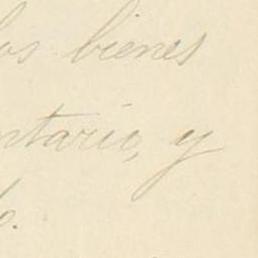 los bienes
ntario, y
o.